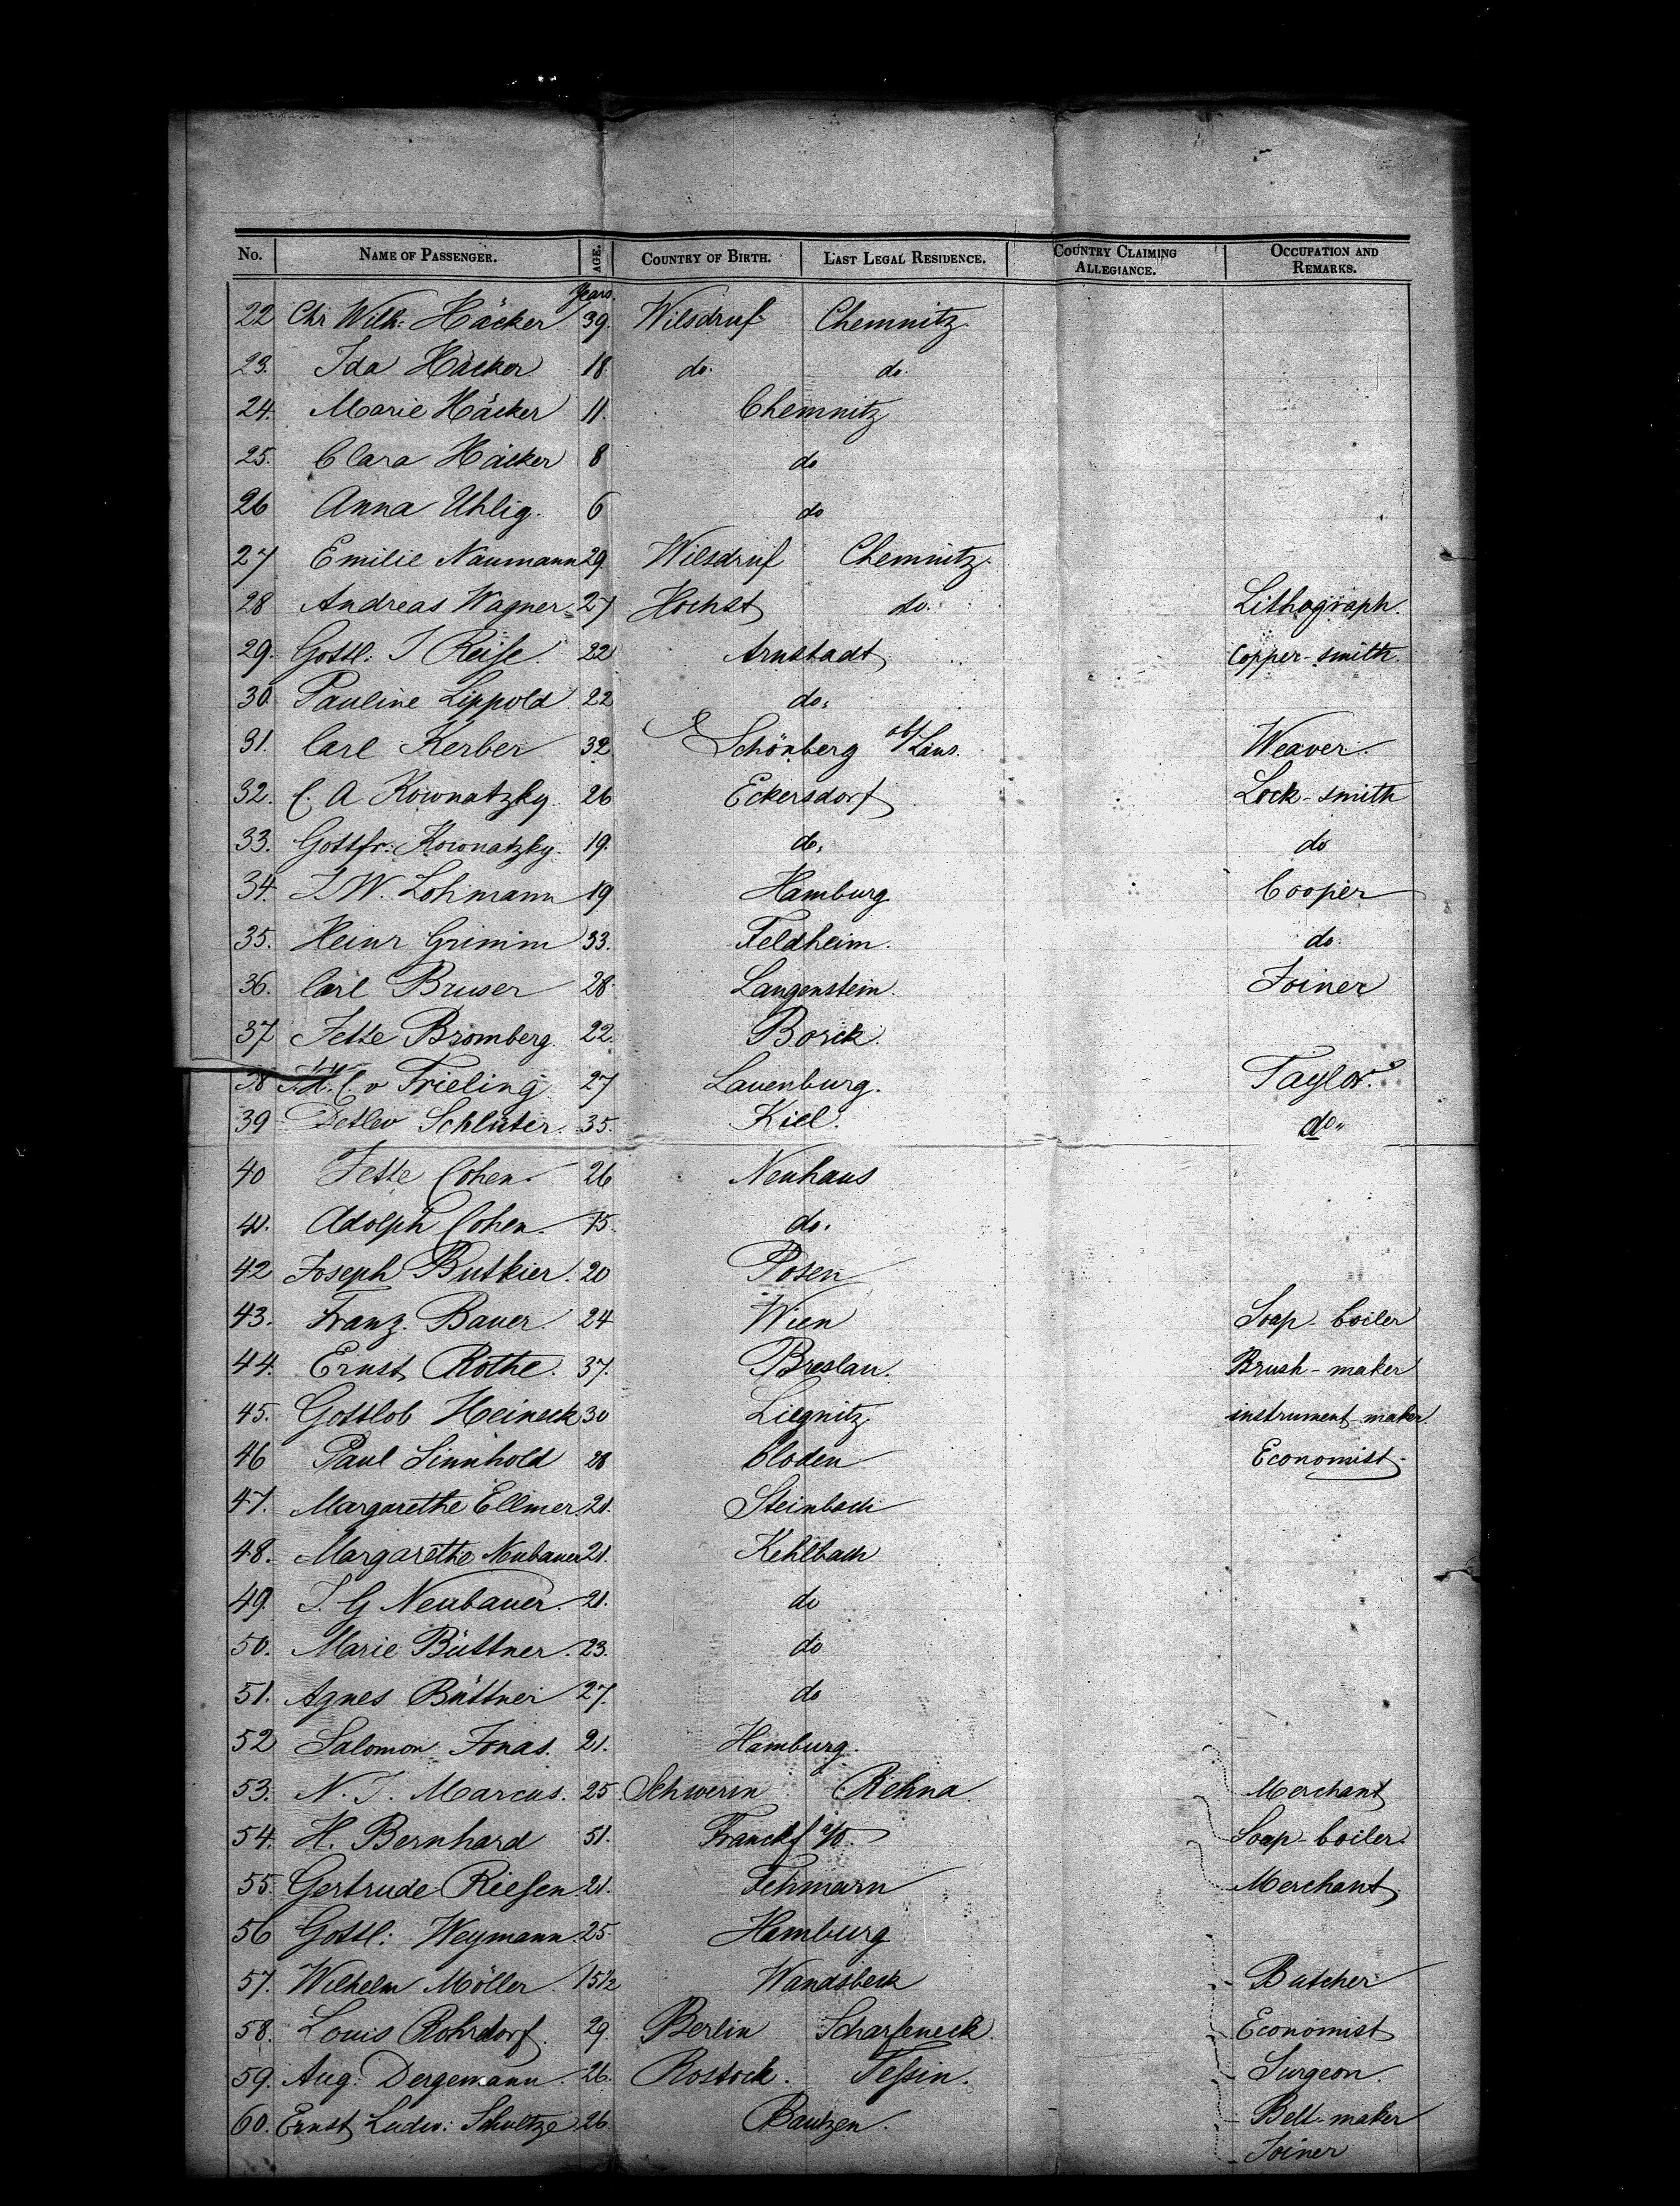 No. NAME OF PASSENGER. AGE. COUNTRY OF BIRTH. LAST LEGAL RESIDENCE. COUNTRY CLAIMING ALLEGIANCE. OCCUPATION AND REMARKS.
Years.
22 Chr Wilh: Häcker 39. Wilsdruf Chemnitz.
23. Ida Häcker 18 do. do.
24. Marie Häcker 11. Chemnitz
25. Clara Häcker 8 do
26 Anna Uhlig. 6 do
27 Emilie Naumann 29 Wilsdruf Chemnitz.
28 Andreas Wagner 27 Höchst do. Lithograph.
29. Gottl: J Reise. 22 Arnstadt Copper-smith.
30. Pauline Lippold 22 do.
31. Carl Kerber 32 Schönberg ob/Laus. Weaver.
32. C. A Kownatzky 26 Eckersdorf Lock-smith
33. Gottfr: Kownatzky. 19. do. do
34. J. W. Lohmann 19 Hamburg Cooper
35. Heinr Grimm 33. Feldheim. do.
36. Carl Bruser 28 Langenstein. Joiner
37 Jette Bromberg. 22. Borck.
38 C. v Frieling 27 Lauenburg. Taylor.
39 Detlev Schlüter. 35. Kiel. do"
40 Jette Cohen 26 Neuhaus
41. Adolph Cohen. 15. do.
42 Joseph Butkier. 20 Posen
43. Franz. Bauer. 24 Wien Soap-boiler
44. Ernst Rothe. 37. Breslau. Brush-maker
45. Gottlob Heineck 30 Liegnitz instrument maker.
46 Paul Sinnhold 28 Cloden Economist.
47. Margarethe Ellmer. 21. Steinbach
48. Margarethe Neubauer 21. Kehlbach
49. J. G Neubauer. 21. do
50. Marie Büttner. 23. do
51. Agnes Büttner 27. do
52 Salomon Jonas. 21. Hamburg.
53. N. J. Marcus. 25. Schwerin Rehna. Merchant
54. H. Bernhard 51. Franckf a/O. Soap-boiler.
55. Gertrude Riesen 21. Fehmarn Merchant.
56 Gottl: Weymann. 25. Hamburg
57. Wilhelm Möller. 15½ Wandsbeck Butcher
58. Louis Rohrdorf. 29. Berlin Scharfeneck. Economist
59. Aug. Dergemann. 26. Rostock. Tessin. Surgeon.
60. Ernst Ludw: Schultze 26. Bautzen. Belt-maker
Joiner